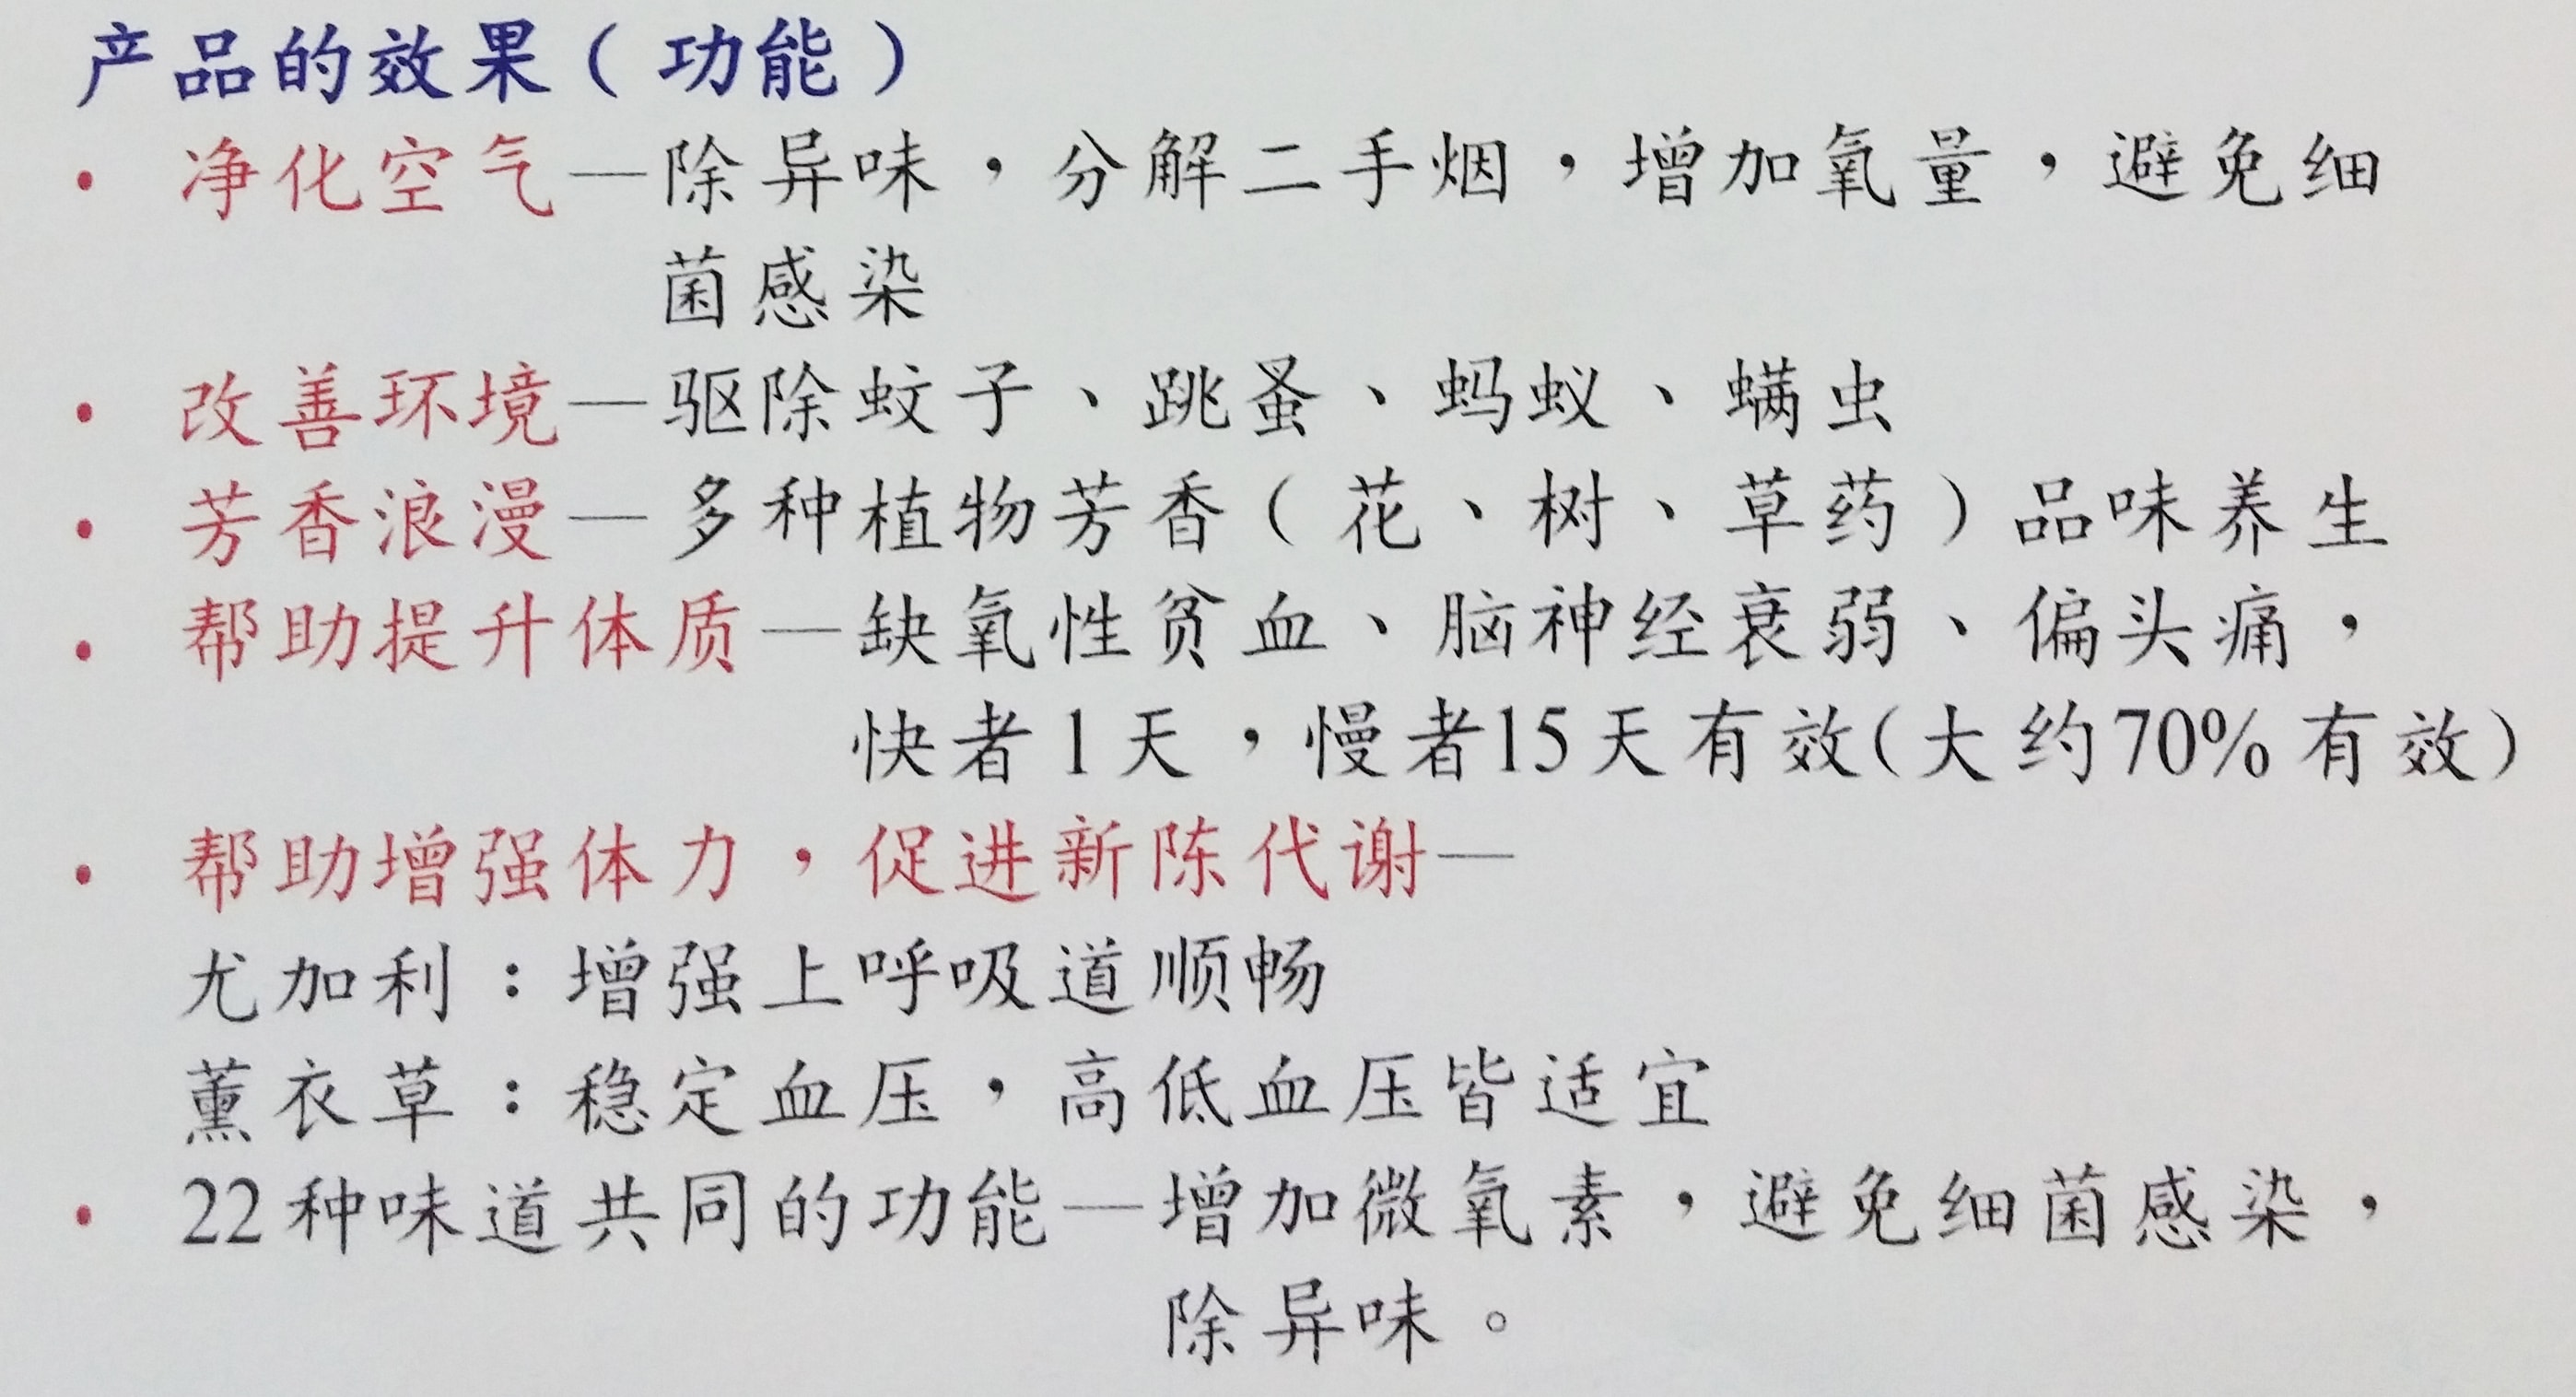 产品的效果（功能）
· 净化空气—除异味，分解二手烟，增加氧量，避免细
菌感染
· 改善环境—驱除蚊子、跳蚤、蚂蚁、螨虫
· 芳香浪漫—多种植物芳香（花、树、草药）品味养生
· 帮助提升体质—缺氧性贫血、脑神经衰弱、偏头痛，
快者1天，慢者15天有效(大约70%有效)
· 帮助增强体力，促进新陈代谢—
尤加利：增强上呼吸道顺畅
薰衣草：稳定血压，高低血压皆适宜
· 22种味道共同的功能—增加微氧素，避免细菌感染，
除异味。